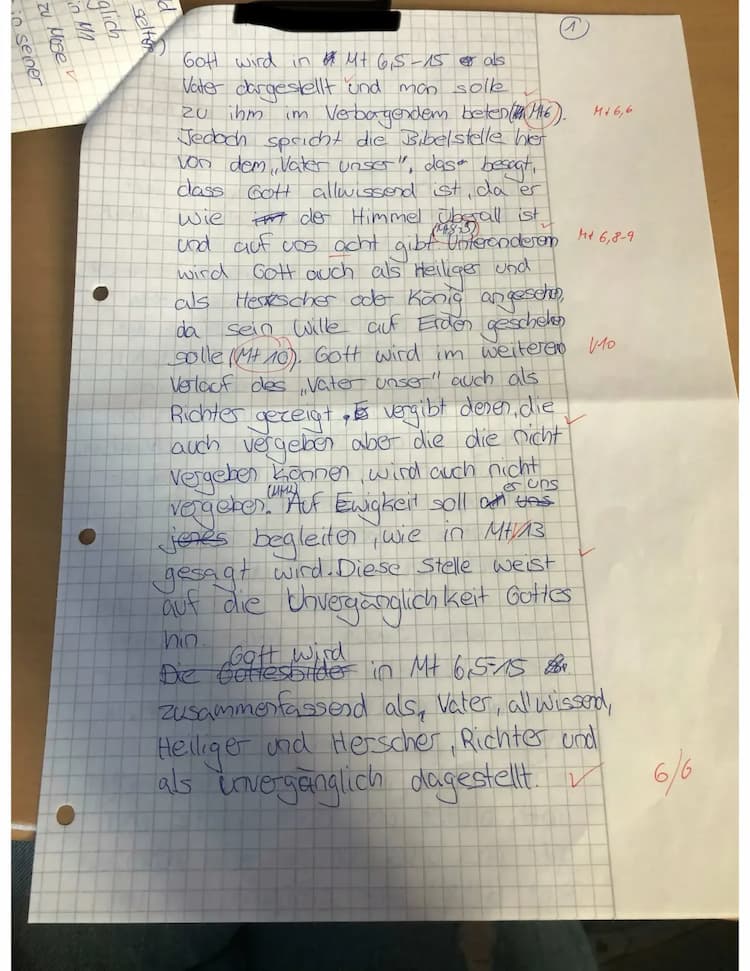 d
glich
selten)
in MA
zu Mose
in seiner
1
Gott wird in Mt 6,5-15 als
Vater dargestellt und man solle
zu ihm im Verborgendem beten (Mt6). Mt 6,6
Jedoch spricht die Bibelstelle hier
von dem „Vater unser", das besagt,
dass Gott allwissend ist, da er
wie der Himmel überall ist
und auf uns acht gibt. Unteranderem Mt 6,8-9
wird Gott auch als Heiliger und
als Herrscher oder König angesehen,
da sein Wille auf Erden geschehen
solle (Mt 10). Gott wird im weiteren V10
Verlauf des „Vater unser" auch als
Richter gezeigt. Er vergibt denen, die
auch vergeben aber die die nicht
vergeben können, wird auch nicht
vergeben. Auf Ewigkeit soll er uns
begleiten, wie in Mt 13
gesagt wird. Diese Stelle weist
auf die Unvergänglichkeit Gottes
hin.
Gott wird
Die Gottesbilder in Mt 6,5-15
zusammenfassend als, Vater, allwissend,
Heiliger und Herscher, Richter und
als unvergänglich dagestellt. 6/6